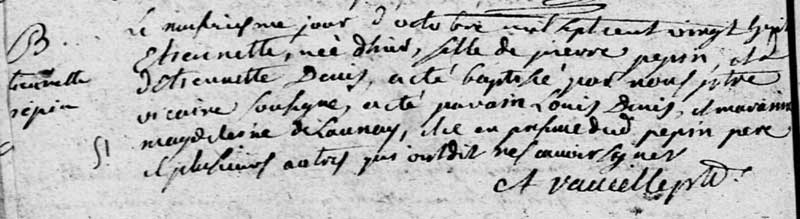 B.
Etiennette
pépin
Le neufviesme jour d'octobre mil sept cent vingt sept
Etiennette, née d'hier, fille de pierre pepin, et
d'Etiennette Denis, a été baptisé par nous ptre
vicaire soussigné, a été parain Louis Denis, et maraine
magdelaine de Launay, et ce en presence dud pepin pere
et plusieurs autres qui ont dit ne scavoir signer